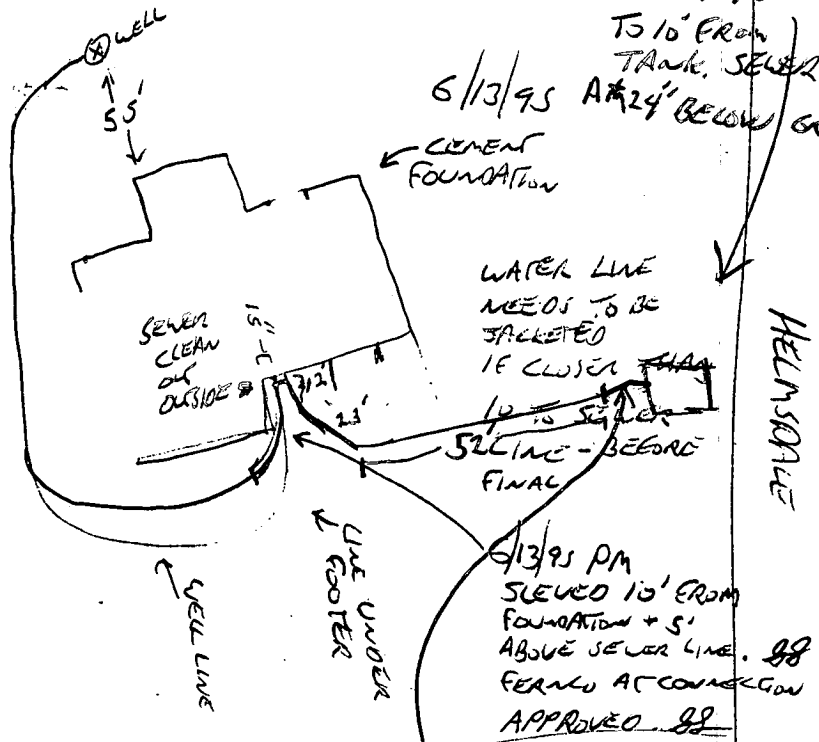 WELL
55'
TO 10' FROM
TANK. SEWER
6/13/95 AT 24" BELOW
CEMENT
FOUNDATION
WATER LINE
NEEDS TO BE
JACKETED
IF CLOSER THAN
10' TO SEWER
LINE - BEFORE
FINAL
SEWER
CLEAN
OUT
OUTSIDE
23'
52'
HELMSDALE
LINE UNDER
FOOTER
WELL LINE
6/13/95 PM
SLEVED 10' FROM
FOUNDATION + 5'
ABOVE SEWER LINE.
FERNCO AT CONNECTION
APPROVED.